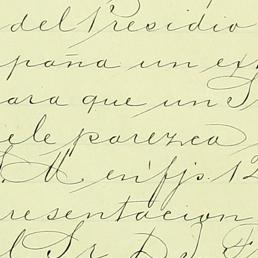 del Presidio
paña un ex
ara que un S
ele parezca
S.M. en fjs. 12
resentacion
l Sr. D. J. F